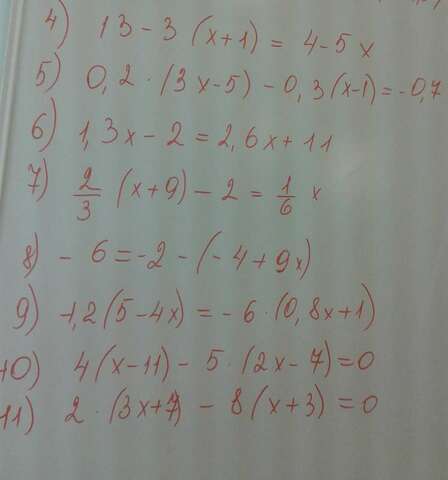 4) 13 - 3 (x+1) = 4 - 5 x
5) 0,2 · (3x-5) - 0,3(x-1) = -0,7
6) 1,3x - 2 = 2,6x + 11
7) 2/3 (x+9) - 2 = 1/6 x
8) - 6 = -2 - (-4 + 9x)
9) -1,2 (5-4x) = - 6 · (0,8x+1)
10) 4(x-11) - 5 · (2x-7) = 0
11) 2 · (3x+7) - 8 (x+3) = 0